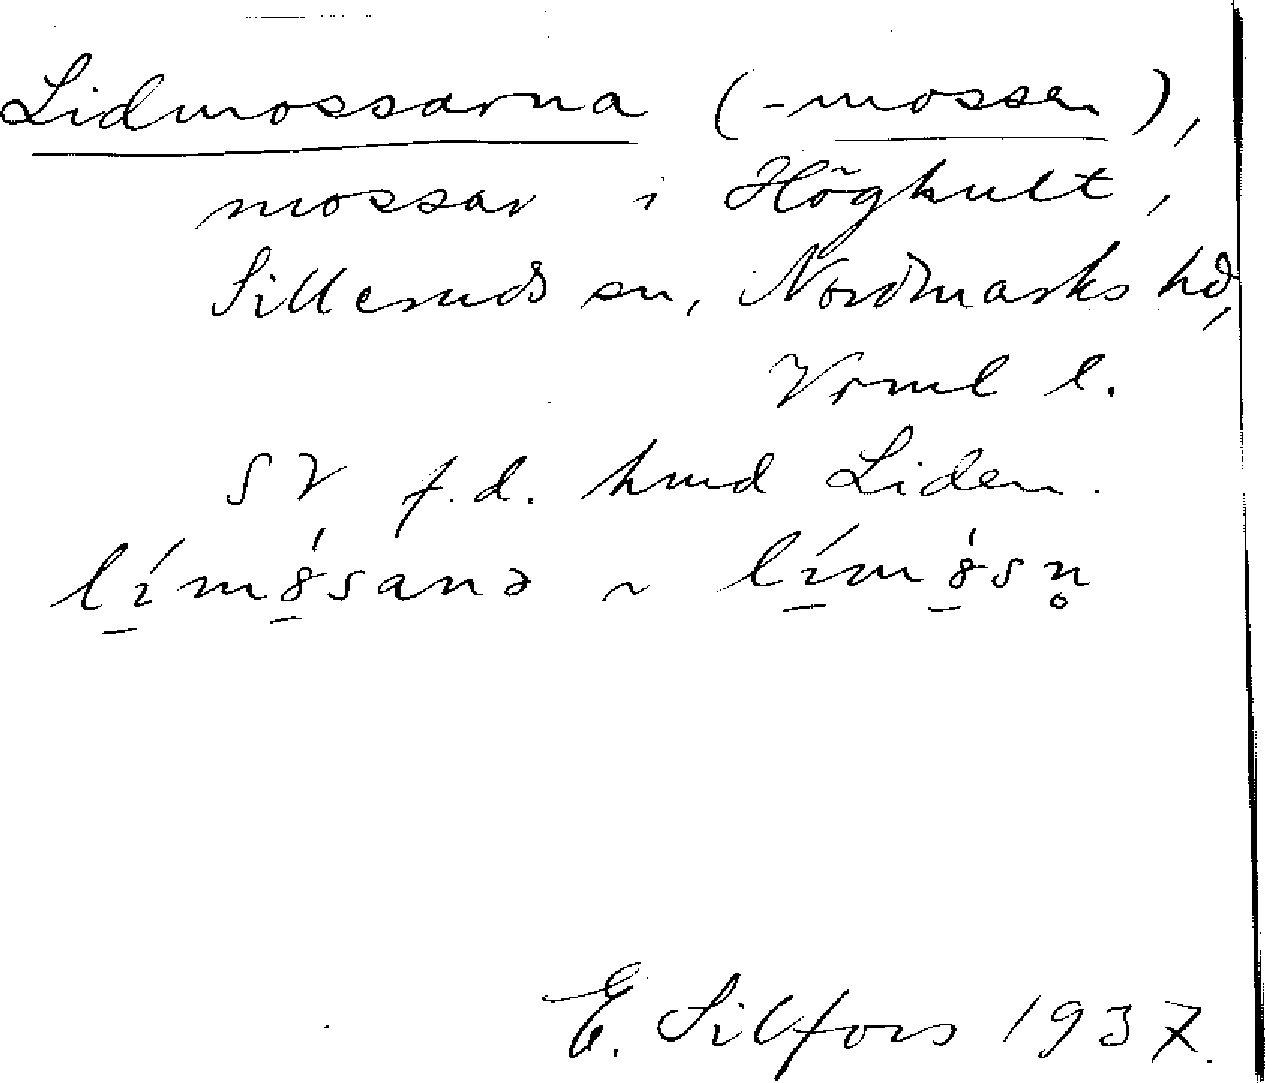 Lidmossarna (-mossen),
mossar i Högkult,
Silleruds sn, Nordmarks hd,
Vrml l.
SV f.d. hmd Liden.
límo̱̍sanə ~ límo̱̍sn̥
E. Silfors 1937.